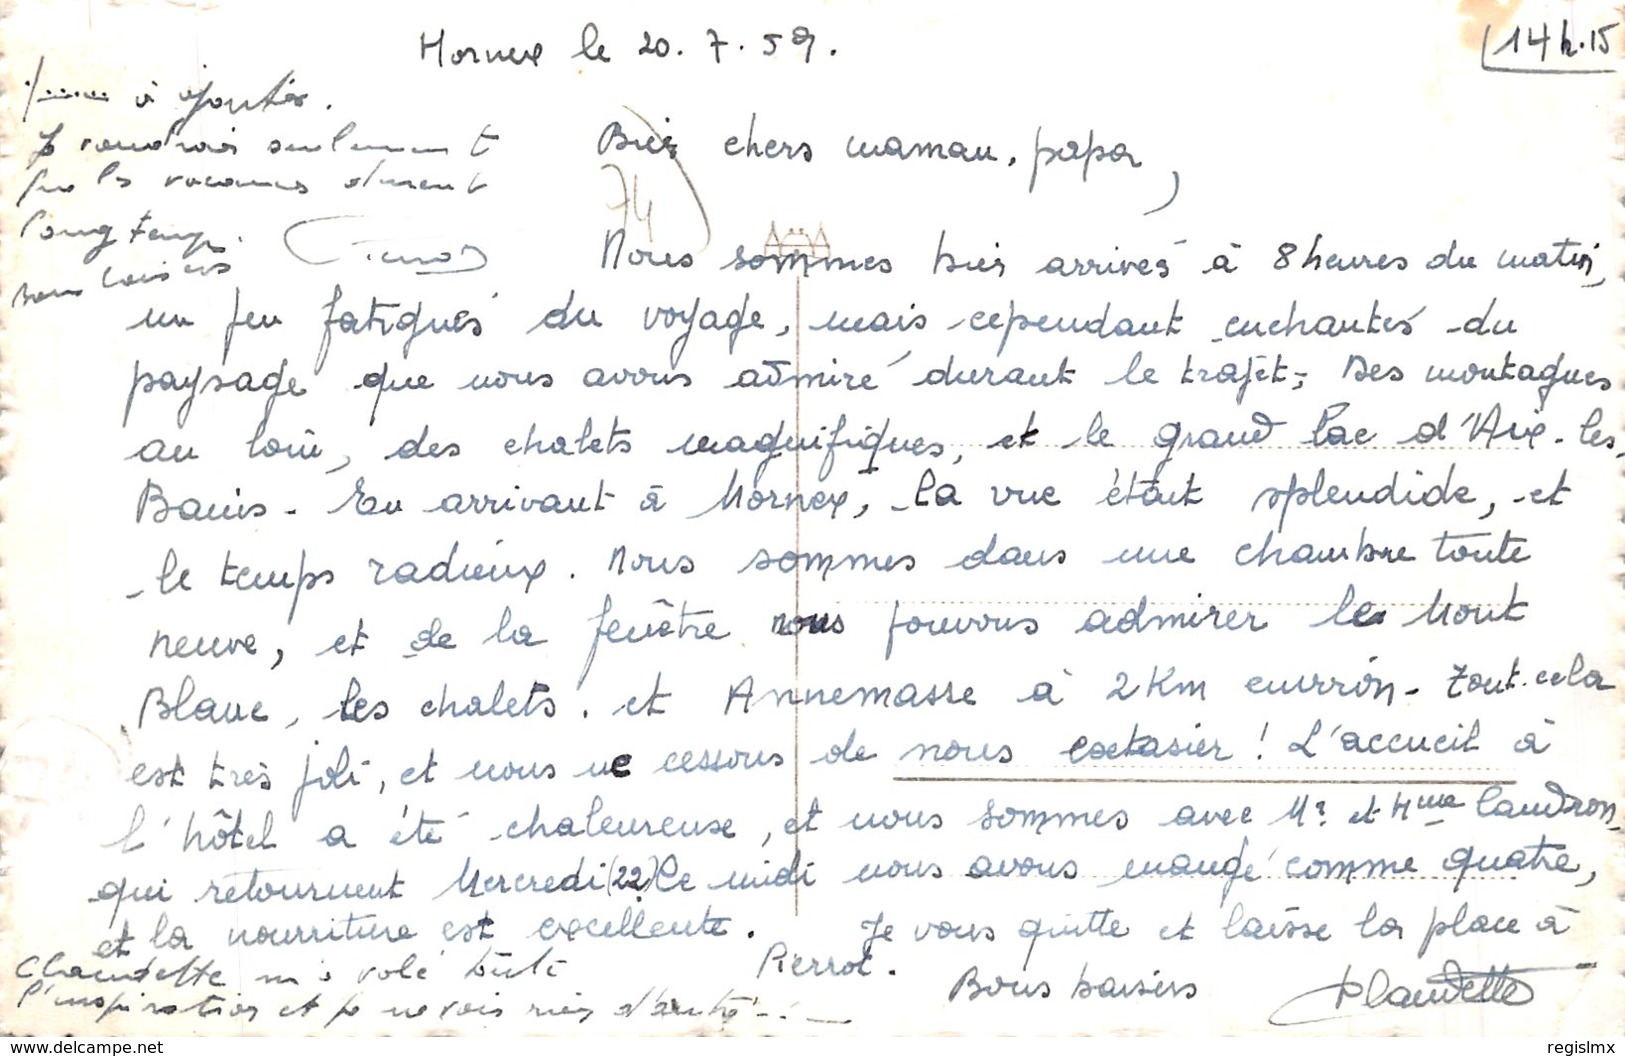 Mornex le 20.7.59.
14h.15
Bien chers maman, papa,
74
Nous sommes bien arrivés à 8 heures du matin,
un peu fatigués du voyage, mais cependant enchantés du
paysage que nous avons admiré durant le trajet; Des montagnes
au loin, des chalets magnifiques, et le grand lac d'Aix-les-
Bains. En arrivant à Mornex, la vue était splendide, et
le temps radieux. Nous sommes dans une chambre toute
neuve, et de la fenêtre nous pouvons admirer le Mont
Blanc, les chalets, et Annemasse à 2 Km environ. Tout cela
est très joli, et nous ne cessons de nous extasier! L'accueil à
l'hôtel a été chaleureuse, et nous sommes avec Mr et Mme Landron
qui retournent Mercredi (22) Ce midi nous avons mangé comme quatre,
et la nourriture est excellente. Je vous quitte et laisse la place à
Pierrot. Bons baisers Claudette
Claudette m'a volé toute
l'inspiration et je ne vois rien d'autre
à ajouter.
Je voudrais seulement
que les vacances durent
longtemps.
Bons baisers Pierrot
www.delcampe.net
regislmx